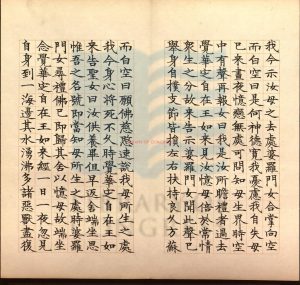 我今示汝母之去處婆羅門女合掌向空
而白空曰是何神德寬我憂慮我自失母
已來晝夜憶戀無處可問知母生界時空
中有聲再報女曰我是汝所瞻禮者過去
覺華定自在王如來見汝憶母倍於常情
眾生之分故來告示婆羅門女聞此聲已
舉身自撲支節皆損左右扶持良久方蘇
而白空曰願佛慈愍速說我母所生之處
我今身心將死不久時覺華定自在王如
來告聖女曰汝供養畢但早返舍端坐思
惟吾之名號即當知母所生之處時婆羅
門女尋禮佛已即歸其舍以憶母故端坐
念覺華定自在王如來經一日一夜忽見
自身到一海邊其水湧沸多諸惡獸盡復